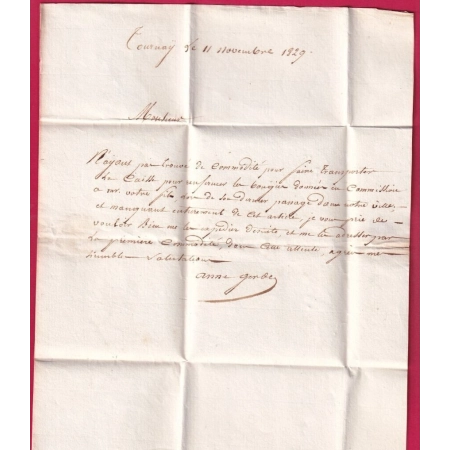 Tournay le 11 novembre 1829.
Monsieur
N'ayant pas trouvé de commodité pour faire transporter
La Caisse pour enfermer les donnée en Commission
a mr. votre fils lors de son dernier passage dans notre ville,
et manquant entierement de cet article, je vous prie de
vouloir bien me les expedier desuite, et me les adresser par
la premiere Commodité, dans cette attente, agréez me
humble Salutations
anne gerbe